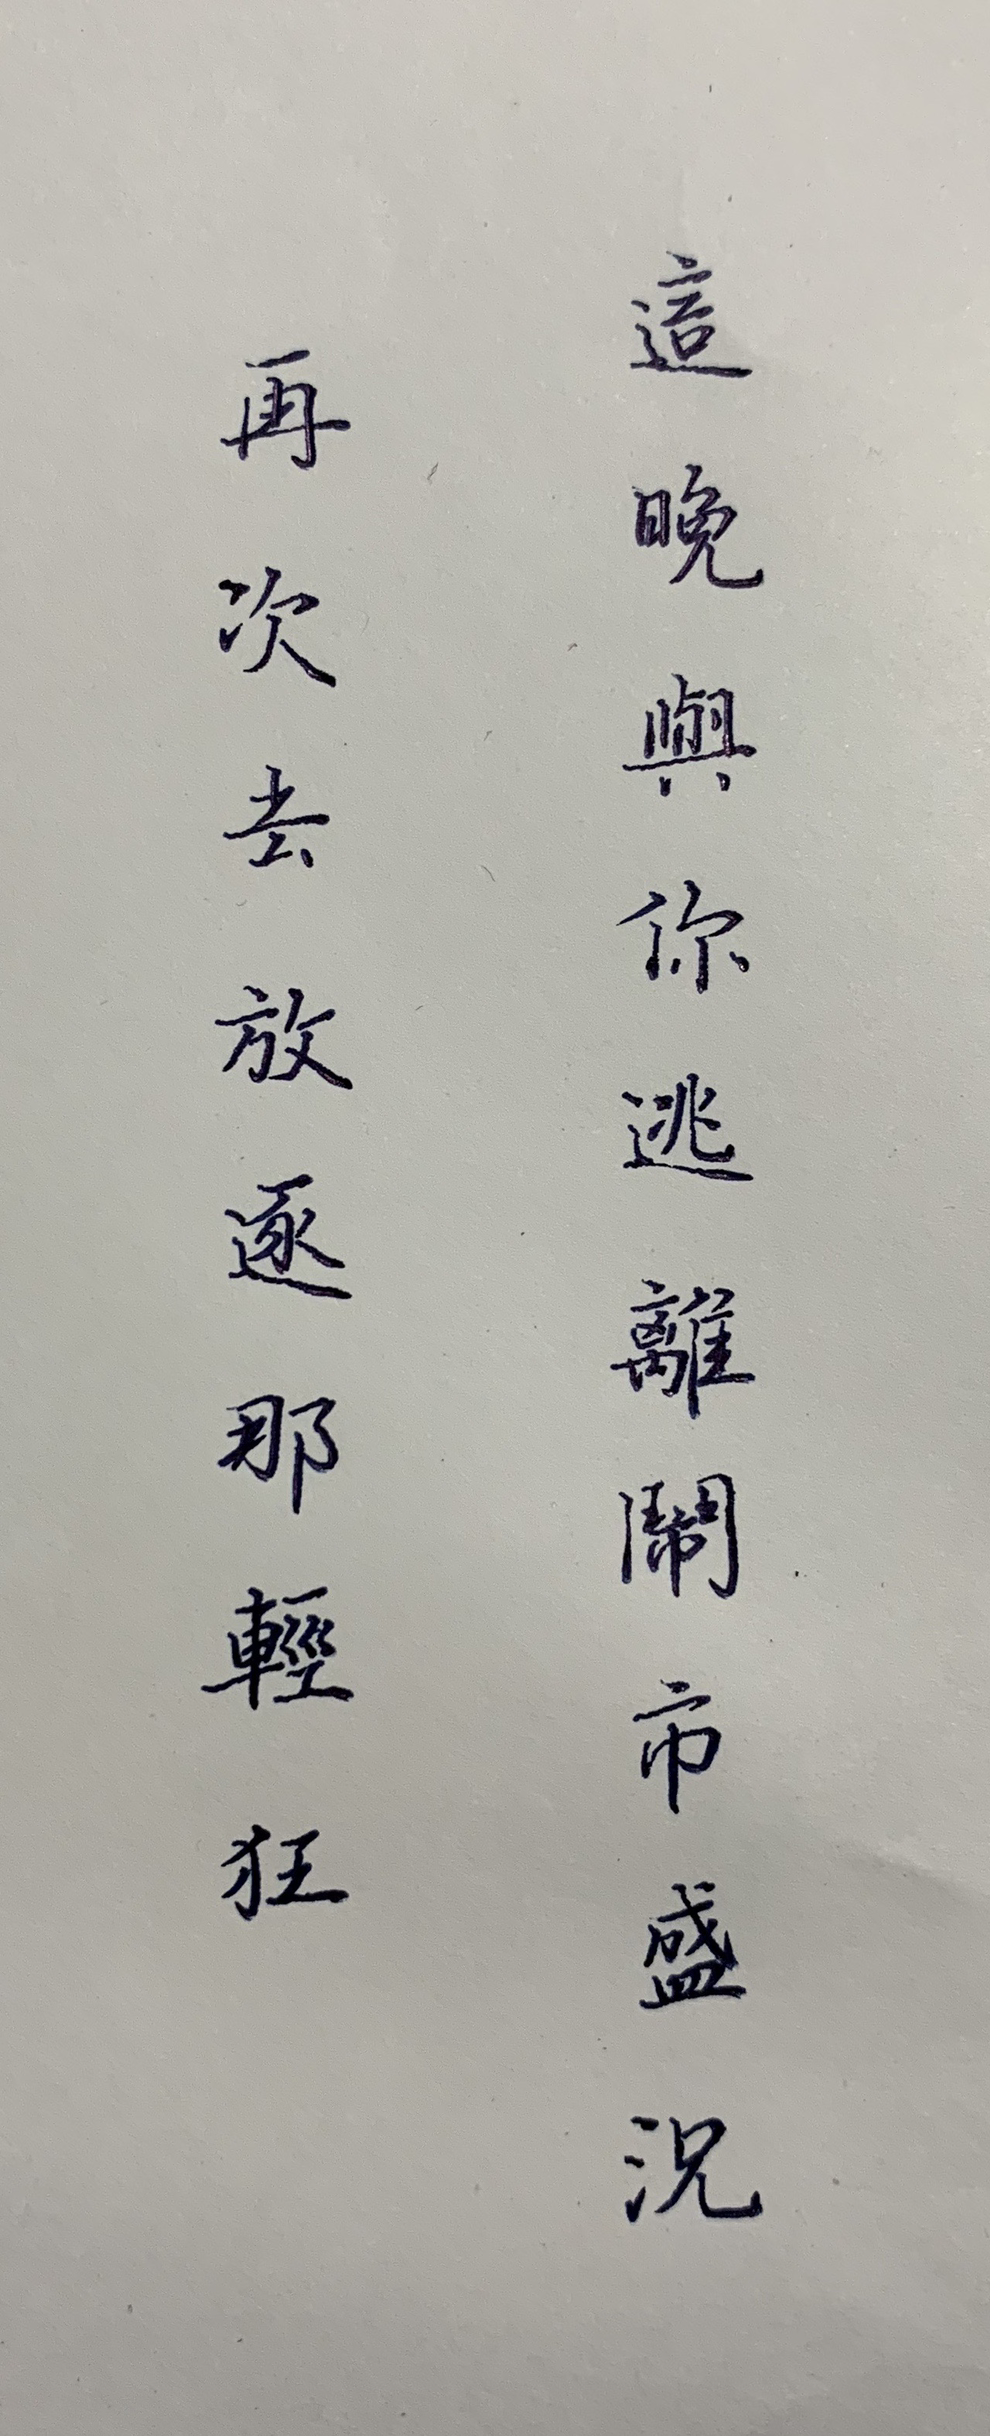 這晚與你逃離鬧市盛況
再次去放逐那輕狂